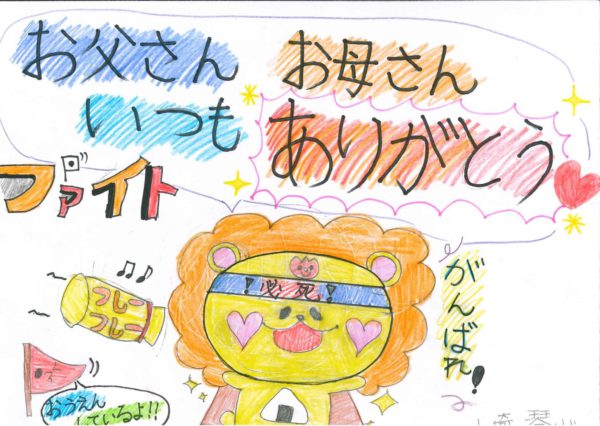 お父さん お母さん
いつも ありがとう
ファイト
フレー
フレー
！必死！
がんばれ！
おうえん
しているよ！！
琴